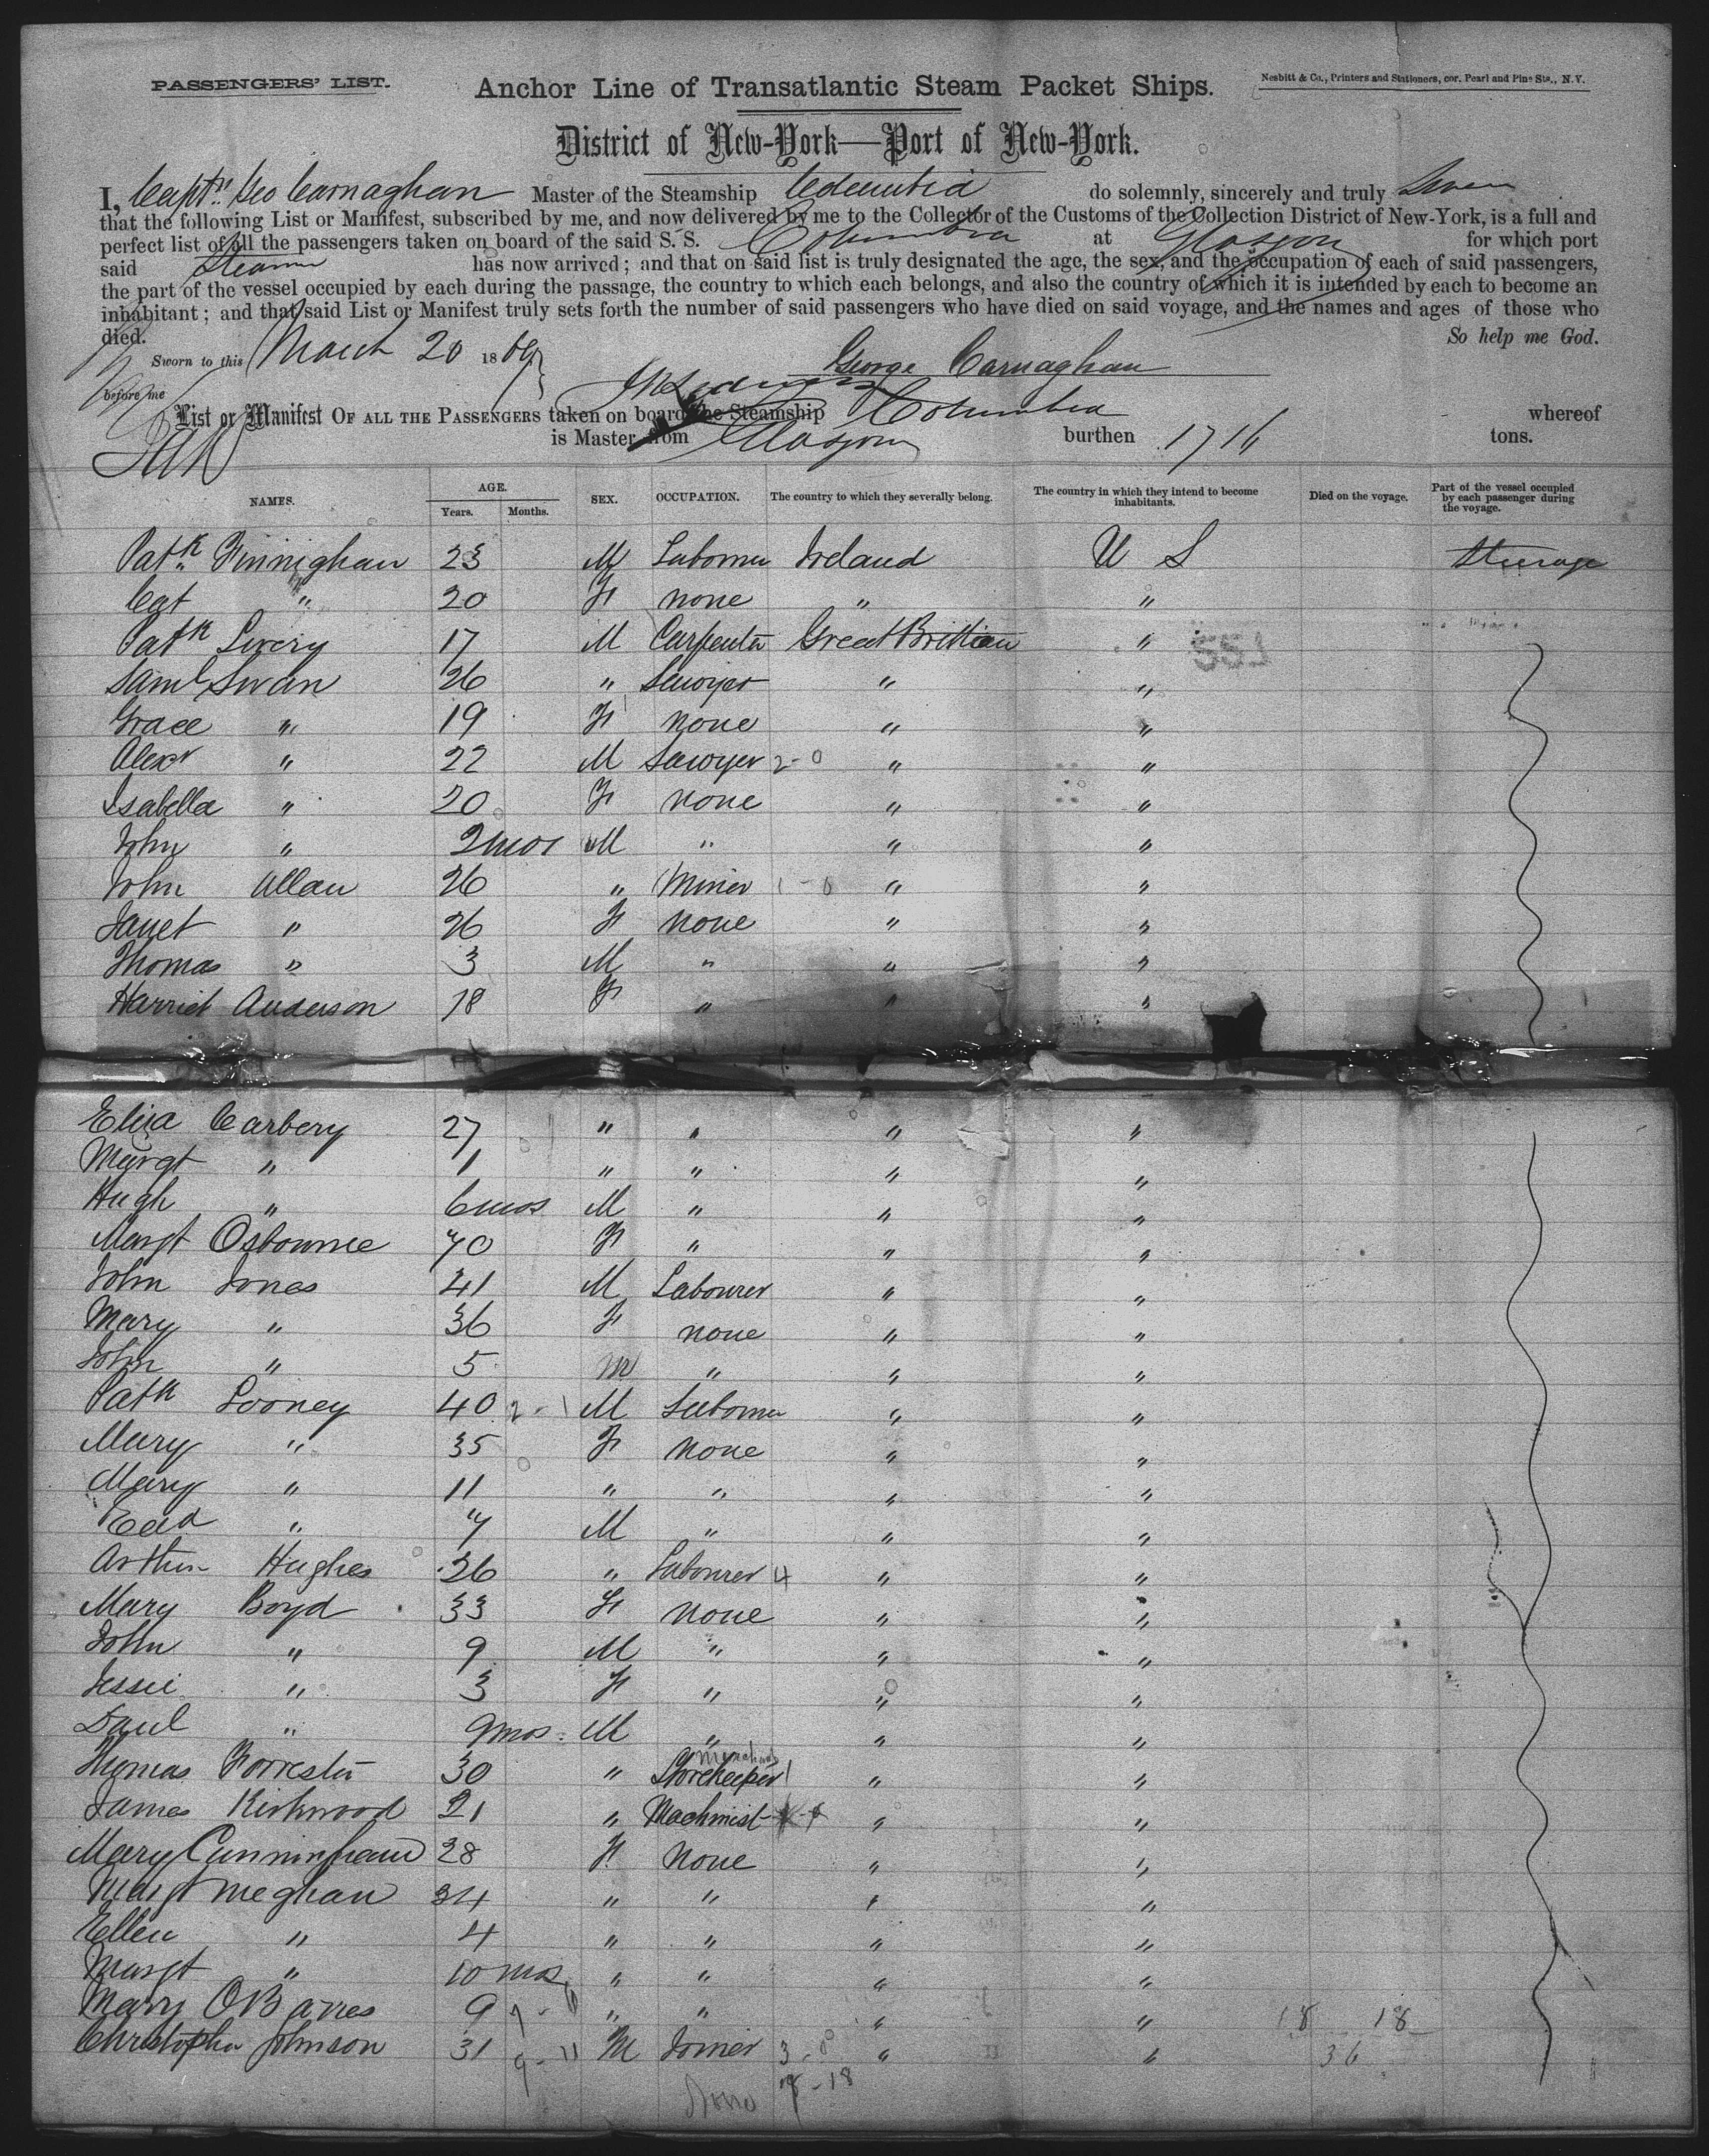 PASSENGERS' LIST.
Anchor Line of Transatlantic Steam Packet Ships.
Nesbitt & Co., Printers and Stationers, cor. Pearl and Pine Sts., N. Y.
District of New-York—Port of New-York.
I, Captn. Geo Carnaghan Master of the Steamship Columbia do solemnly, sincerely and truly Swear
that the following List or Manifest, subscribed by me, and now delivered by me to the Collector of the Customs of the Collection District of New-York, is a full and
perfect list of all the passengers taken on board of the said S. S. Columbia at Glasgow for which port
said Steamer has now arrived; and that on said list is truly designated the age, the sex, and the occupation of each of said passengers,
the part of the vessel occupied by each during the passage, the country to which each belongs, and also the country of which it is intended by each to become an
inhabitant; and that said List or Manifest truly sets forth the number of said passengers who have died on said voyage, and the names and ages of those who
died. So help me God.
Sworn to this March 20 1869
George Carnaghan
before me
List or Manifest OF ALL THE PASSENGERS taken on board the Steamship Columbia whereof
is Master, from Glasgow burthen 1716 tons.
NAMES. AGE. Years. Months. SEX. OCCUPATION. The country to which they severally belong. The country in which they intend to become inhabitants. Died on the voyage. Part of the vessel occupied by each passenger during the voyage.
Patk Finnighan 23 M Labourer Ireland U S Steerage
Cat " 20 F none " "
Patk Livery 17 M Carpenter Great Brittian "
Saml Swan 26 " Sawyer " "
Grace " 19 F none " "
Alexr " 22 M Sawyer 2-0 " "
Isabella " 20 F none " "
John " 2 mos M " " "
John Allan 26 " Miner 1-0 " "
Janet " 26 F none " "
Thomas " 3 M " " "
Harriet Anderson 18 F " " "
Eliza Carbery 27 " " " "
Margt " 1 " " " "
Hugh " 6 mos M " " "
Margt Osbourne 70 F " " "
John Jones 41 M Labourer " "
Mary " 36 F none " "
John " 5 M " " "
Patk Looney 40 2-1 M Labourer " "
Mary " 35 F none " "
Mary " 11 " " " "
Edd " 7 M " " "
Arthur Hughes 26 " Labourer 4 " "
Mary Boyd 33 F none " "
John " 9 M " " "
Jessie " 3 F " " "
" 9 mos. M " " "
merchant
Thomas Forrester 30 " Storekeeper 1 " "
James Kirkwood 21 " Machinist " "
Mary Cunningham 28 F None " "
Margt Meghan 34 " " " "
Ellen " 4 " " " "
Margt " 10 mos " " " "
Mary 9 " " " " 18 18
Christopher Johnson 31 9-11 M Joiner 3-0 " " 36
8-18